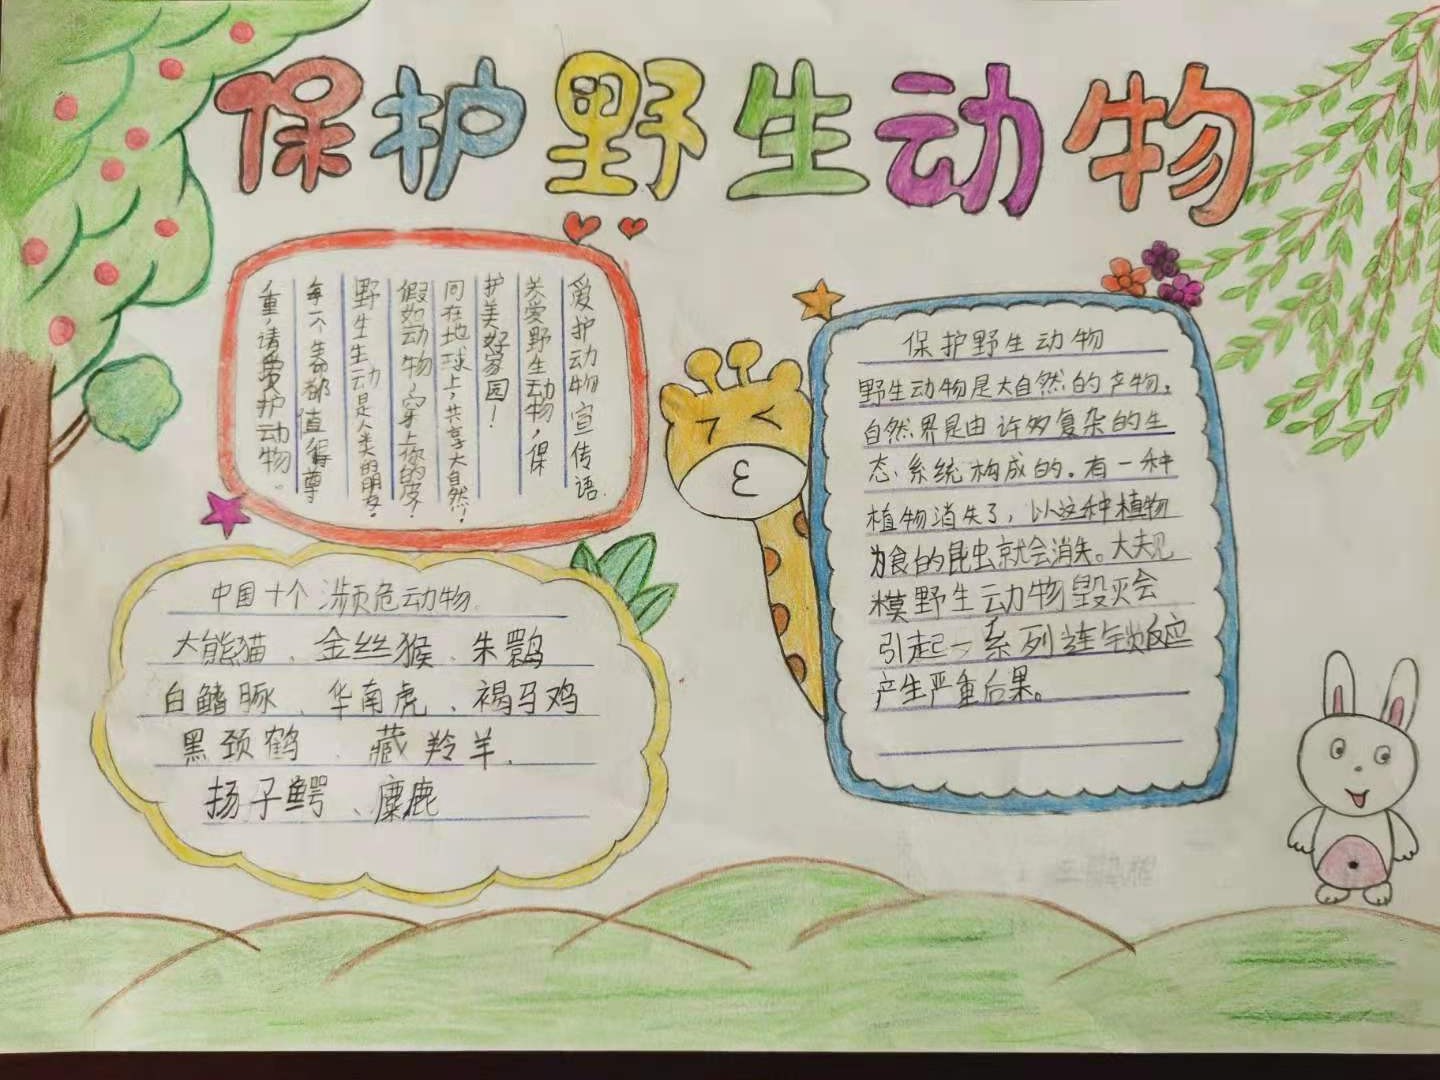 保护野生动物
爱护动物宣传语
关爱野生动物，保
护美好家园！
同在地球上，共享大自然！
假如动物，穿上你的皮！
野生生动是人类的朋友。
每一个生命都值得尊
重，请爱护动物。
中国十个濒危动物
大熊猫、金丝猴、朱鹮
白鳍豚、华南虎、褐马鸡
黑颈鹤、藏羚羊、
扬子鳄、麋鹿
保护野生动物
野生动物是大自然的产物，
自然界是由许多复杂的生
态系统构成的。有一种
植物消失了，以这种植物
为食的昆虫就会消失。大夫见
模野生动物毁灭会
引起一系列连锁反应
产生严重后果。